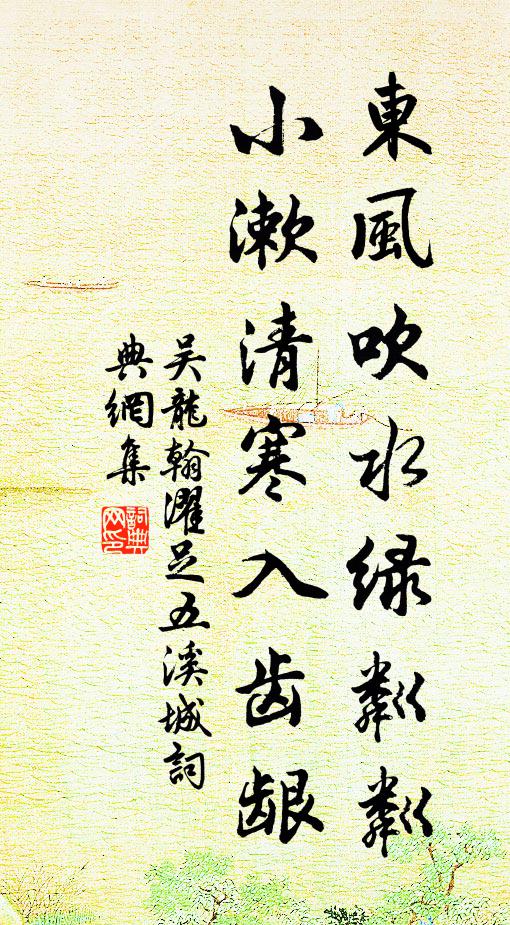 東風吹水绿粼粼
小漱清寒入齿龈
吴龍翰濯足五溪城詞
典網集
詞典网印